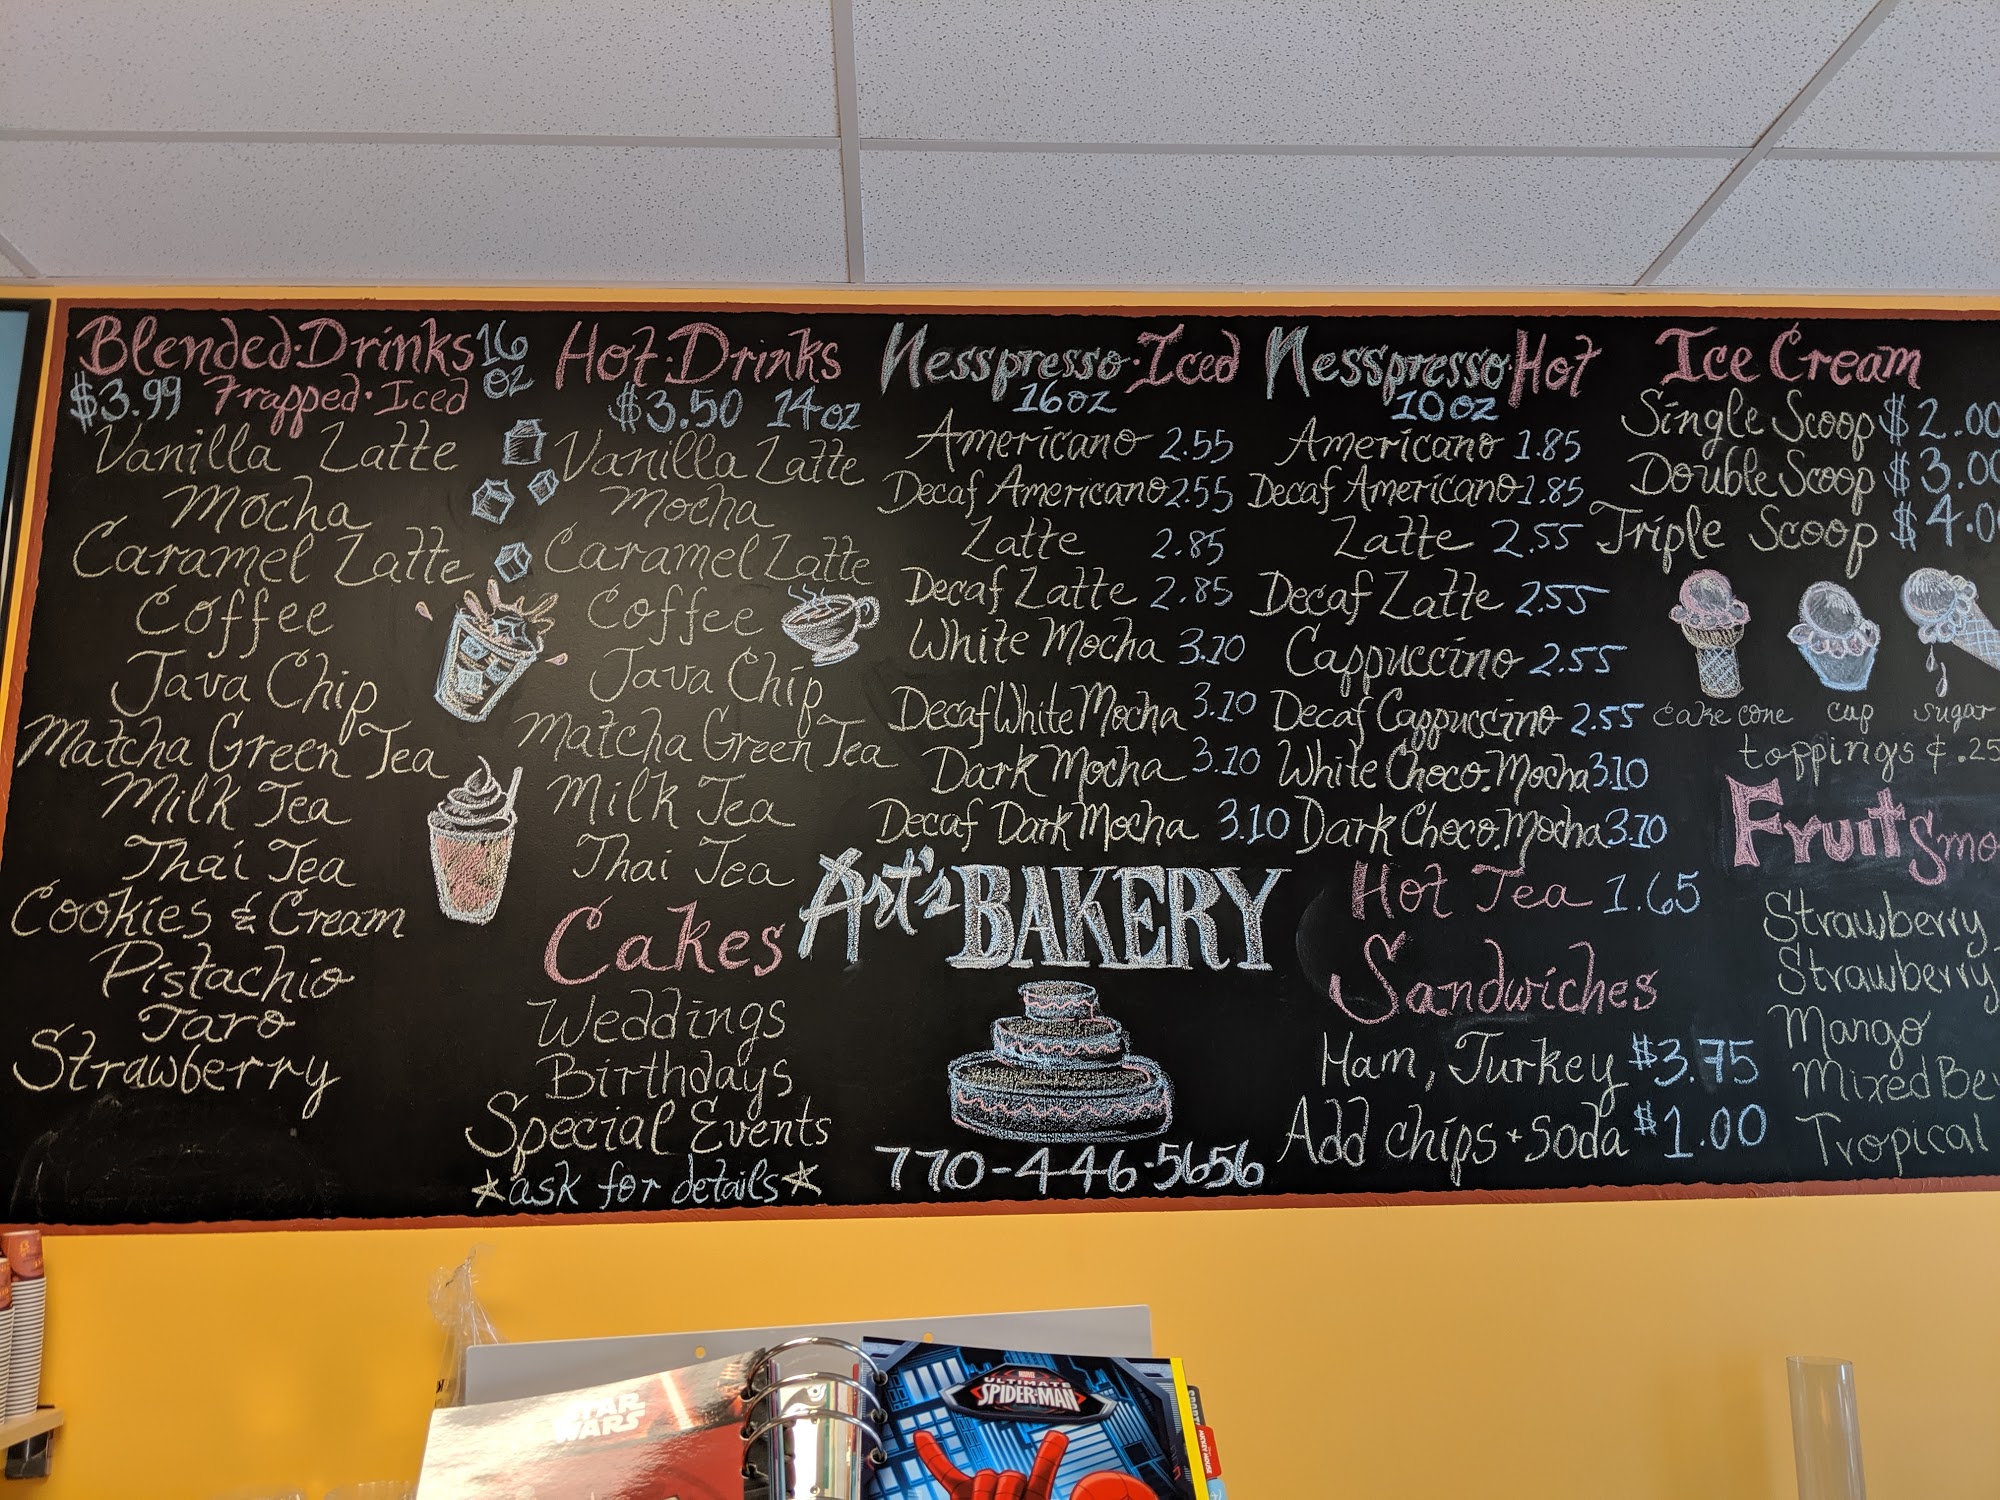 Blended·Drinks 16 oz
$3.99 Frapped·Iced
Vanilla Latte
Mocha
Caramel Latte
Coffee
Java Chip
Matcha Green Tea
Milk Tea
Thai Tea
Cookies & Cream
Pistachio
Taro
Strawberry
Hot·Drinks
$3.50 14oz
Vanilla Latte
Mocha
Caramel Latte
Coffee
Java Chip
Matcha Green Tea
Milk Tea
Thai Tea
Cakes
Weddings
Birthdays
Special Events
*ask for details*
Nesspresso·Iced
16oz
Americano 2.55
Decaf Americano 2.55
Latte 2.85
Decaf Latte 2.85
White Mocha 3.10
Decaf White Mocha 3.10
Dark Mocha 3.10
Decaf Dark Mocha 3.10
Art's BAKERY
770-446-5656
Nesspresso·Hot
10oz
Americano 1.85
Decaf Americano 1.85
Latte 2.55
Decaf Latte 2.55
Cappuccino 2.55
Decaf Cappuccino 2.55
White Choco. Mocha 3.10
Dark Choco. Mocha 3.10
Hot Tea 1.65
Sandwiches
Ham, Turkey $3.75
Add chips + soda $1.00
Ice Cream
Single Scoop $2.00
Double Scoop $3.00
Triple Scoop $4.0
cake cone cup sugar
toppings ¢.25
Fruit Smo
Strawberry
Strawberry
Mango
Mixed Be
Tropical
STAR
WARS
MARVEL
ULTIMATE
SPIDER-MAN
MICKEY MOUSE